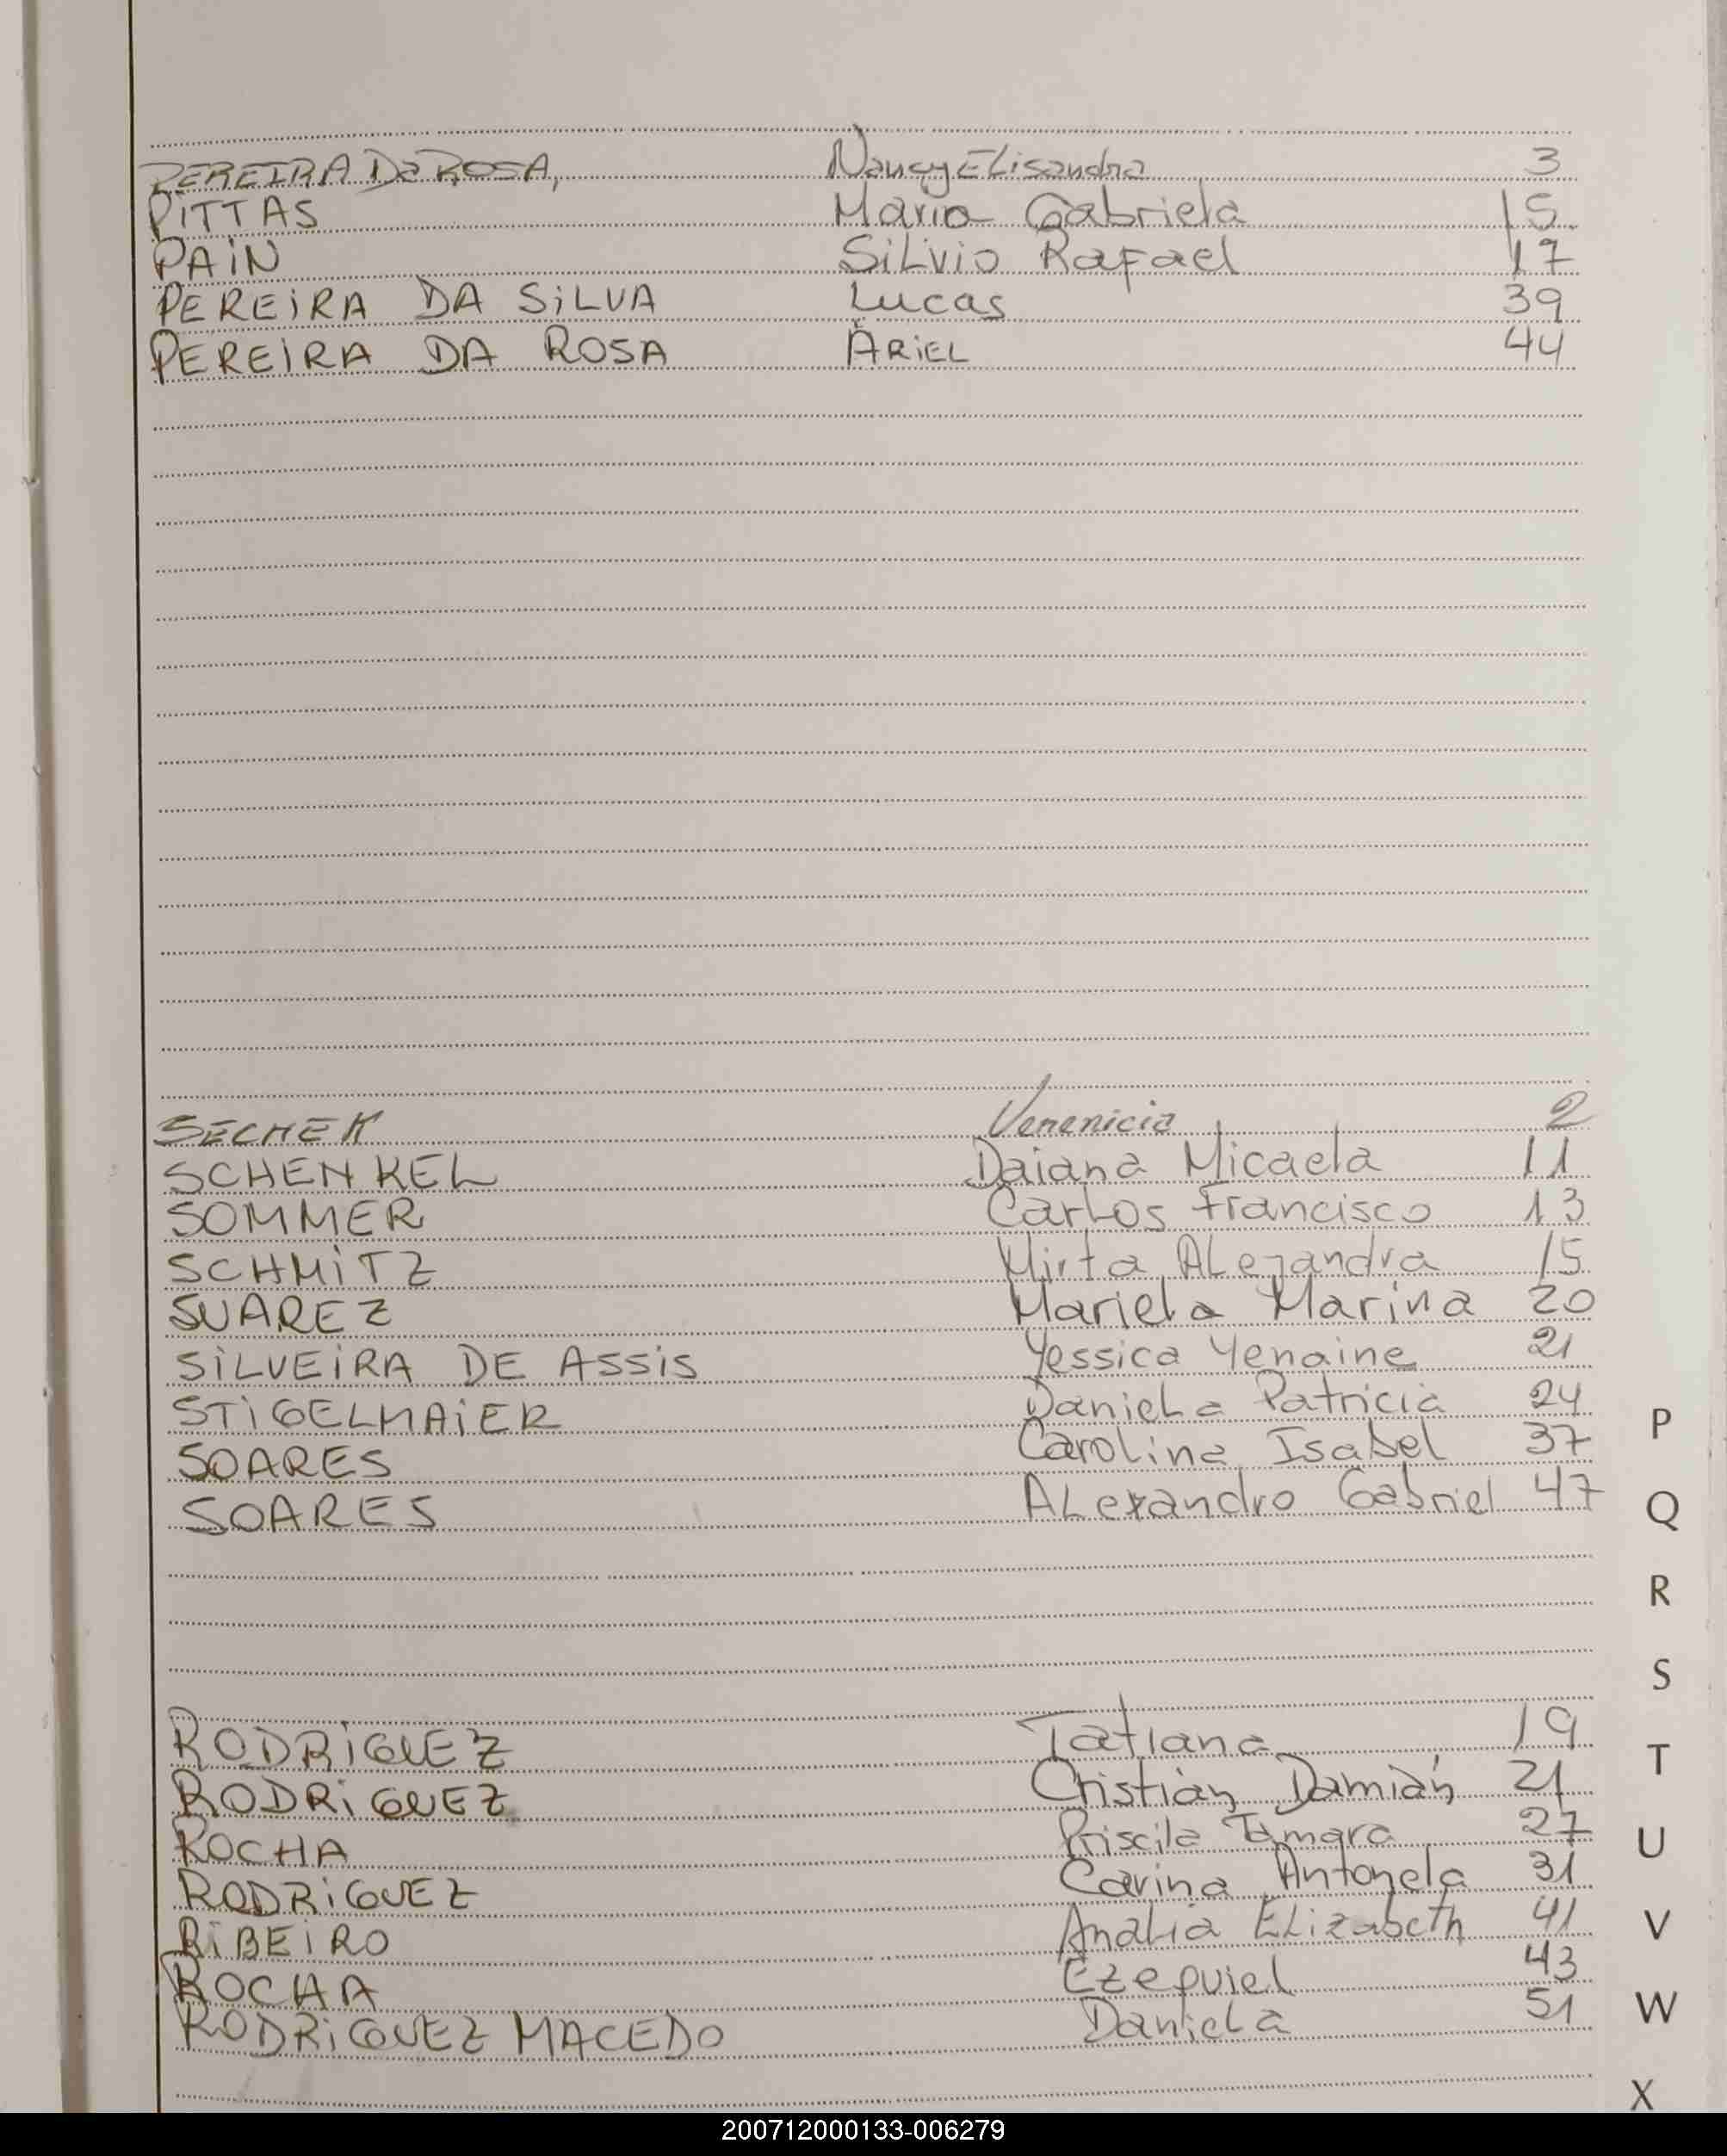 PEREIRA Da ROSA, Nancy Elisandra 3
PiTTAS Maria Gabriela 15
PAiN SiLvio Rafael 17
PEREiRA DA SiLVA Lucas 39
PEREiRA DA ROSA ARiEL 44
SECHEK Verenicia 2
SCHENKEL Daiana Micaela 11
SOMMER Carlos Francisco 13
SCHMiTZ Mirta ALejandra 15
SUAREZ Mariela Marina 20
SiLVEiRA DE ASSiS Yessica Yenaine 21
STiGELMAiER Daniela Patricia 24
SOARES Carolina Isabel 37
SOARES ALexandro Gabriel 47
P
Q
R
S
RODRiGUEZ Tatiana 19
T
RODRiGUEZ Cristián Damián 21
ROCHA Priscila Tamara 27
U
RODRiGUEZ Carina Antonela 31
RiBEiRO Analia ELizabeth 41
V
ROCHA Ezequiel 43
RODRiGUEZ MACEDO Daniela 51
W
X
200712000133-006279